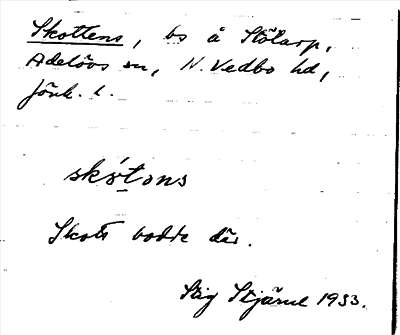 Skottens, bs å Stölarp,
Adelövs sn, N. Vedbo hd,
Jönk. l.
skót̠ons
Skott bodde där.
Stig Stjärne 1933.